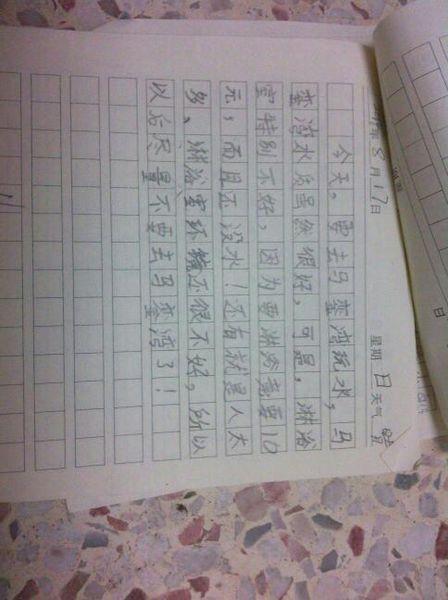 年8月17日 星期日 天气晴
今天，要去马銮湾玩水，马
銮湾水质虽然很好，可是，淋浴
室特别不好，因为要淋浴竟要10
元，而且还没水！还有就是人太
多，淋浴室环境还很不好，所以
以后尽量不要去马銮湾了！
日